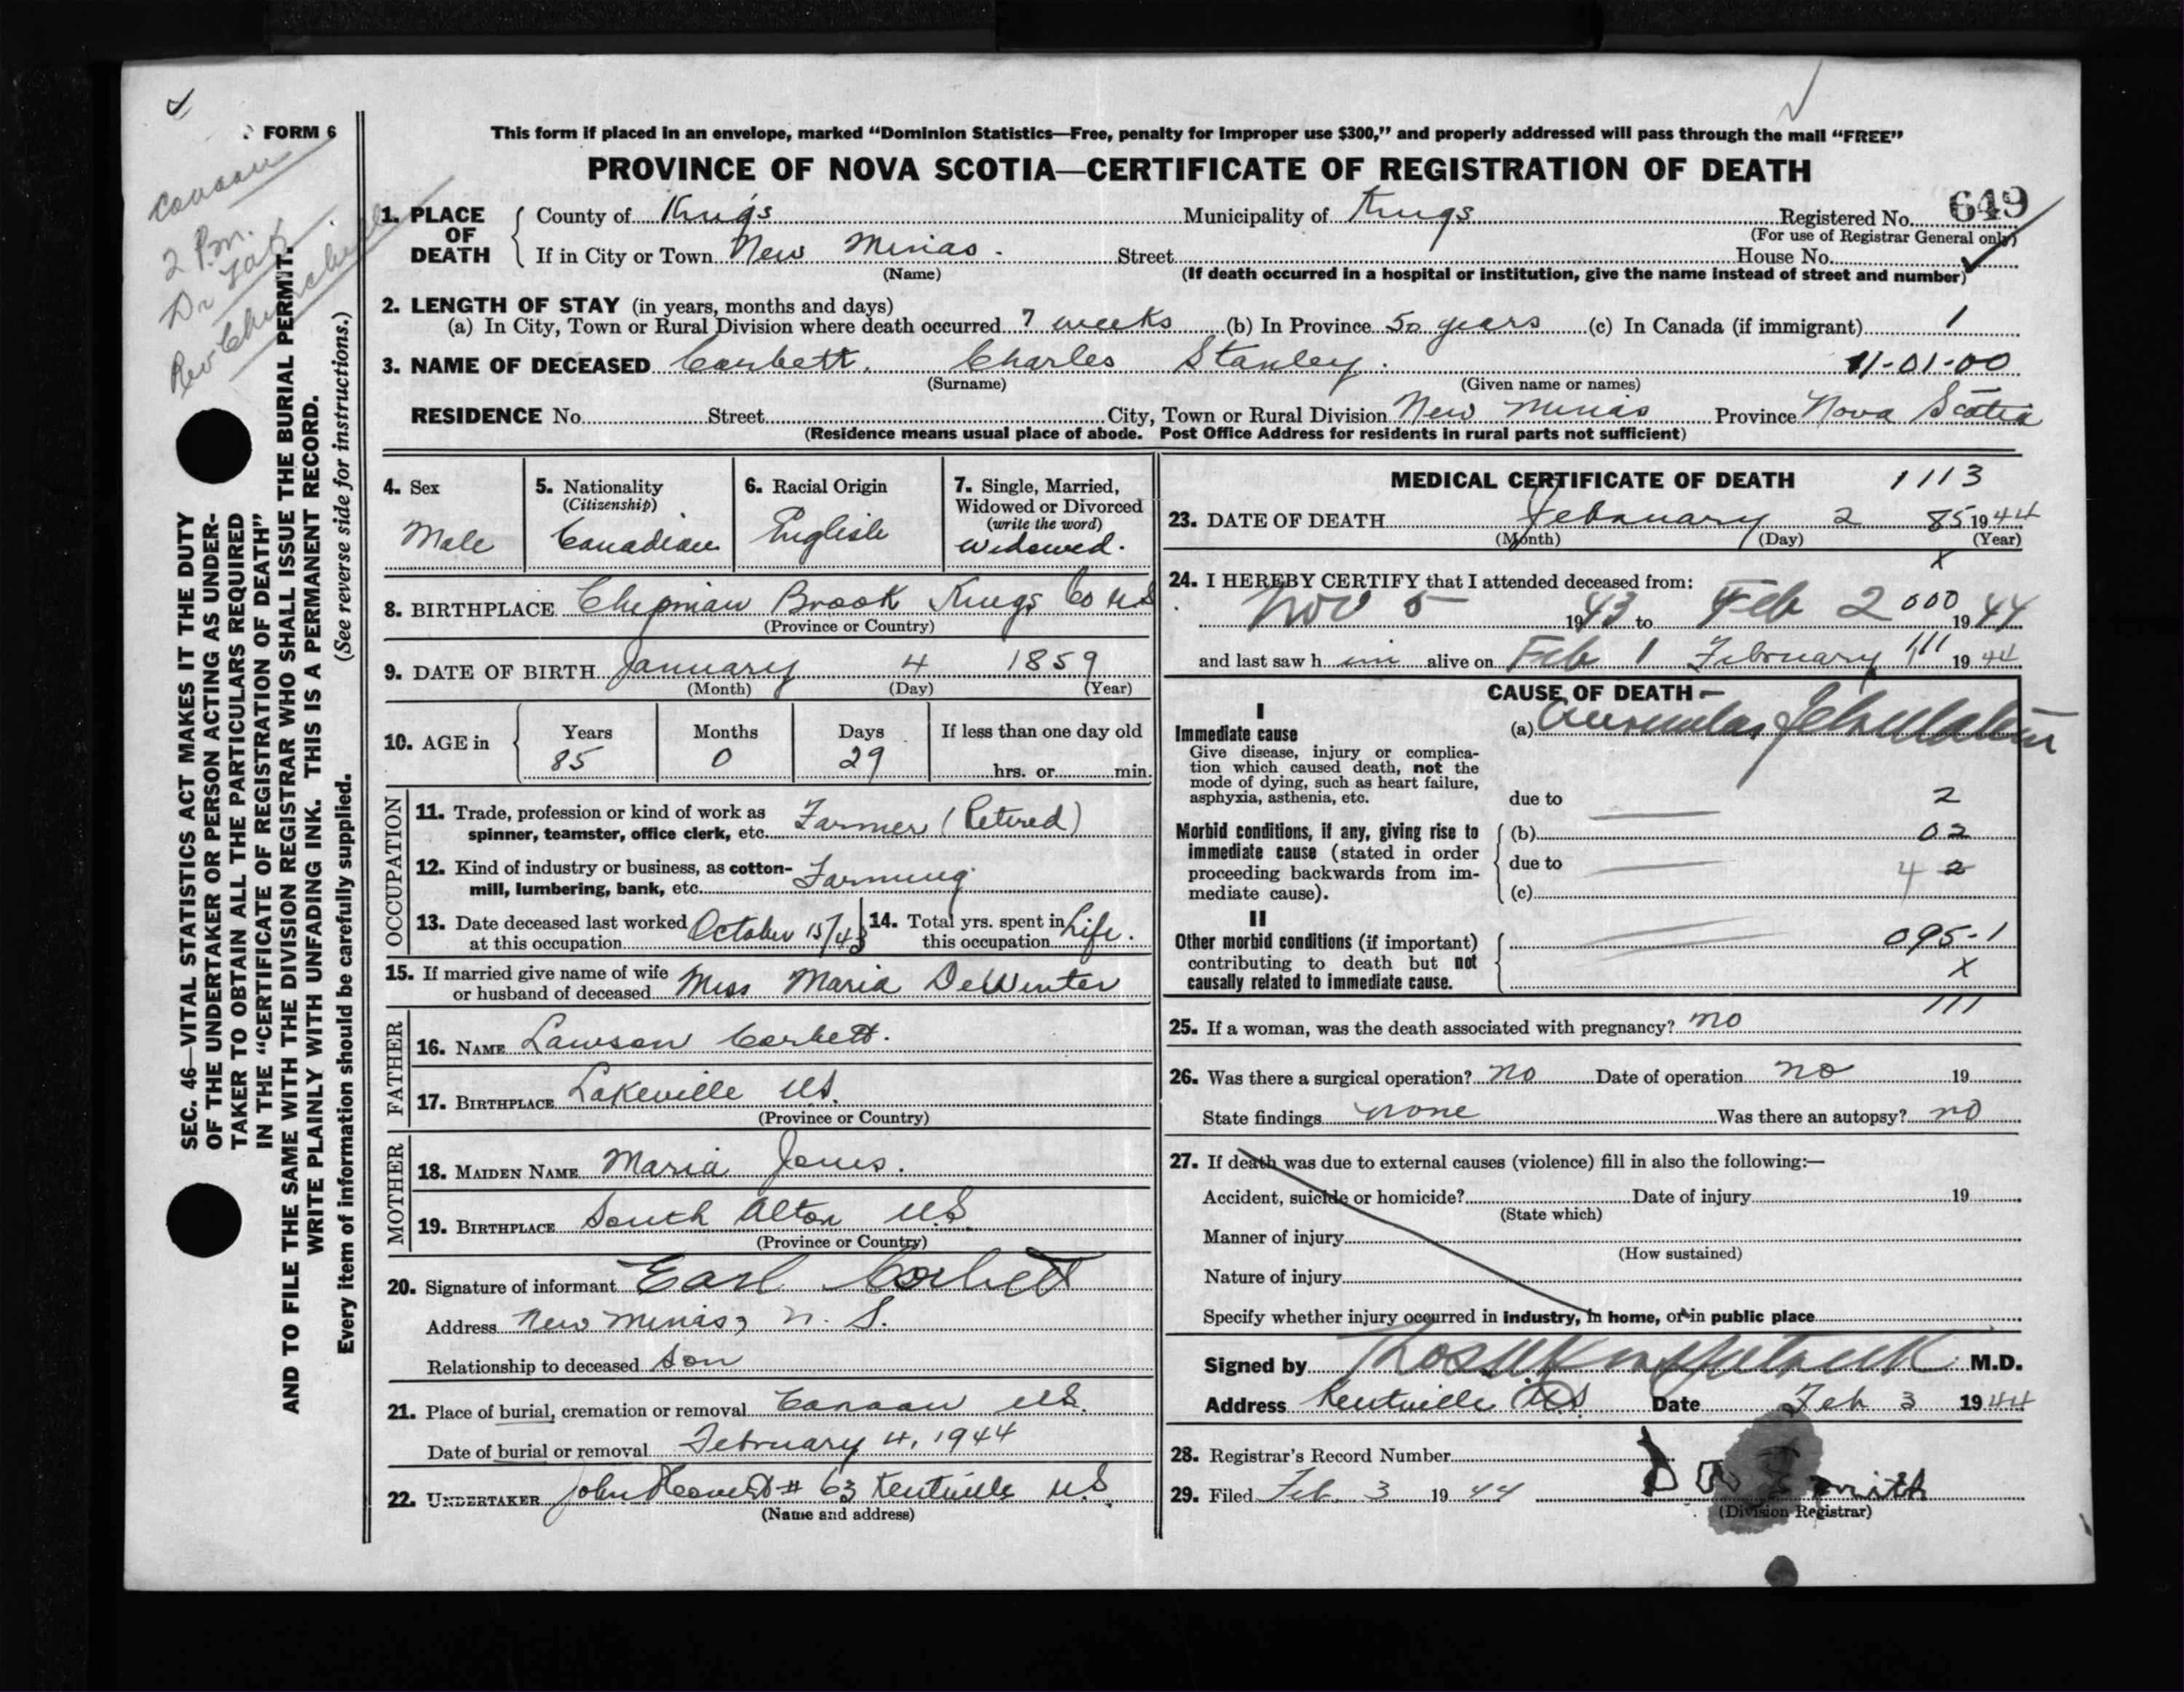 FORM 6
Canaan
2 P.m.
Dr
Rev
SEC. 46—VITAL STATISTICS ACT MAKES IT THE DUTY
OF THE UNDERTAKER OR PERSON ACTING AS UNDER-
TAKER TO OBTAIN ALL THE PARTICULARS REQUIRED
IN THE "CERTIFICATE OF REGISTRATION OF DEATH"
AND TO FILE THE SAME WITH THE DIVISION REGISTRAR WHO SHALL ISSUE THE BURIAL PERMIT.
WRITE PLAINLY WITH UNFADING INK. THIS IS A PERMANENT RECORD.
Every item of information should be carefully supplied. (See reverse side for instructions.)
This form if placed in an envelope, marked "Dominion Statistics—Free, penalty for improper use $300," and properly addressed will pass through the mail "FREE"
PROVINCE OF NOVA SCOTIA—CERTIFICATE OF REGISTRATION OF DEATH
1. PLACE OF DEATH County of Kings Municipality of Kings Registered No. 649
(For use of Registrar General only)
If in City or Town New Minas. Street House No.
(Name) (If death occurred in a hospital or institution, give the name instead of street and number)
2. LENGTH OF STAY (in years, months and days)
(a) In City, Town or Rural Division where death occurred 7 weeks (b) In Province 50 years (c) In Canada (if immigrant) 1
3. NAME OF DECEASED Corbett, Charles Stanley. 11-01-00
(Surname) (Given name or names)
RESIDENCE No. Street City, Town or Rural Division New Minas Province Nova Scotia
(Residence means usual place of abode. Post Office Address for residents in rural parts not sufficient)
4. Sex
Male
5. Nationality
(Citizenship)
Canadian
6. Racial Origin
English
7. Single, Married,
Widowed or Divorced
(write the word)
Widowed.
8. BIRTHPLACE Chipman Brook Kings Co N.S
(Province or Country)
9. DATE OF BIRTH January 4 1859
(Month) (Day) (Year)
10. AGE in Years Months Days If less than one day old
85 0 29 hrs. or min.
OCCUPATION
11. Trade, profession or kind of work as
spinner, teamster, office clerk, etc. Farmer (Retired)
12. Kind of industry or business, as cotton-
mill, lumbering, bank, etc. Farming
13. Date deceased last worked
at this occupation October 15/43
14. Total yrs. spent in
this occupation Life.
15. If married give name of wife
or husband of deceased Miss Maria DeWinter
FATHER
16. NAME Lawson Corbett.
17. BIRTHPLACE Lakeville N.S.
(Province or Country)
MOTHER
18. MAIDEN NAME Maria Jones.
19. BIRTHPLACE South Alton N.S
(Province or Country)
20. Signature of informant Earl Corbett
Address New Minas, N. S.
Relationship to deceased Son
21. Place of burial, cremation or removal Canaan N.S.
Date of burial or removal February 4, 1944
22. UNDERTAKER John # 63 Kentville N.S.
(Name and address)
MEDICAL CERTIFICATE OF DEATH 1113
23. DATE OF DEATH February 2 85 1944
(Month) (Day) (Year)
x
24. I HEREBY CERTIFY that I attended deceased from:
Nov 5 1943 to Feb 2 000 1944
and last saw him alive on Feb 1 February 111 1944
CAUSE OF DEATH—
I
Immediate cause
Give disease, injury or complica-
tion which caused death, not the
mode of dying, such as heart failure,
asphyxia, asthenia, etc.
(a) Auricular Fibrillation
due to 2
Morbid conditions, if any, giving rise to
immediate cause (stated in order
proceeding backwards from im-
mediate cause).
(b) 02
due to 42
(c)
II
Other morbid conditions (if important)
contributing to death but not
causally related to immediate cause.
095-1
x
111
25. If a woman, was the death associated with pregnancy? no
26. Was there a surgical operation? no Date of operation no 19
State findings none Was there an autopsy? no
27. If death was due to external causes (violence) fill in also the following:—
Accident, suicide or homicide? Date of injury 19
(State which)
Manner of injury
(How sustained)
Nature of injury
Specify whether injury occurred in industry, in home, or in public place
Signed by M.D.
Address Kentville N.S. Date Feb 3 1944
28. Registrar's Record Number
29. Filed Feb. 3 19 44 Smith
(Division Registrar)